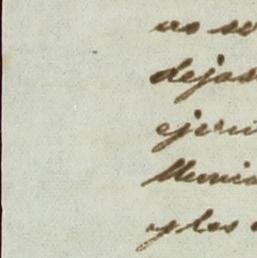 as se
dejas
ejerci
Munic
y los